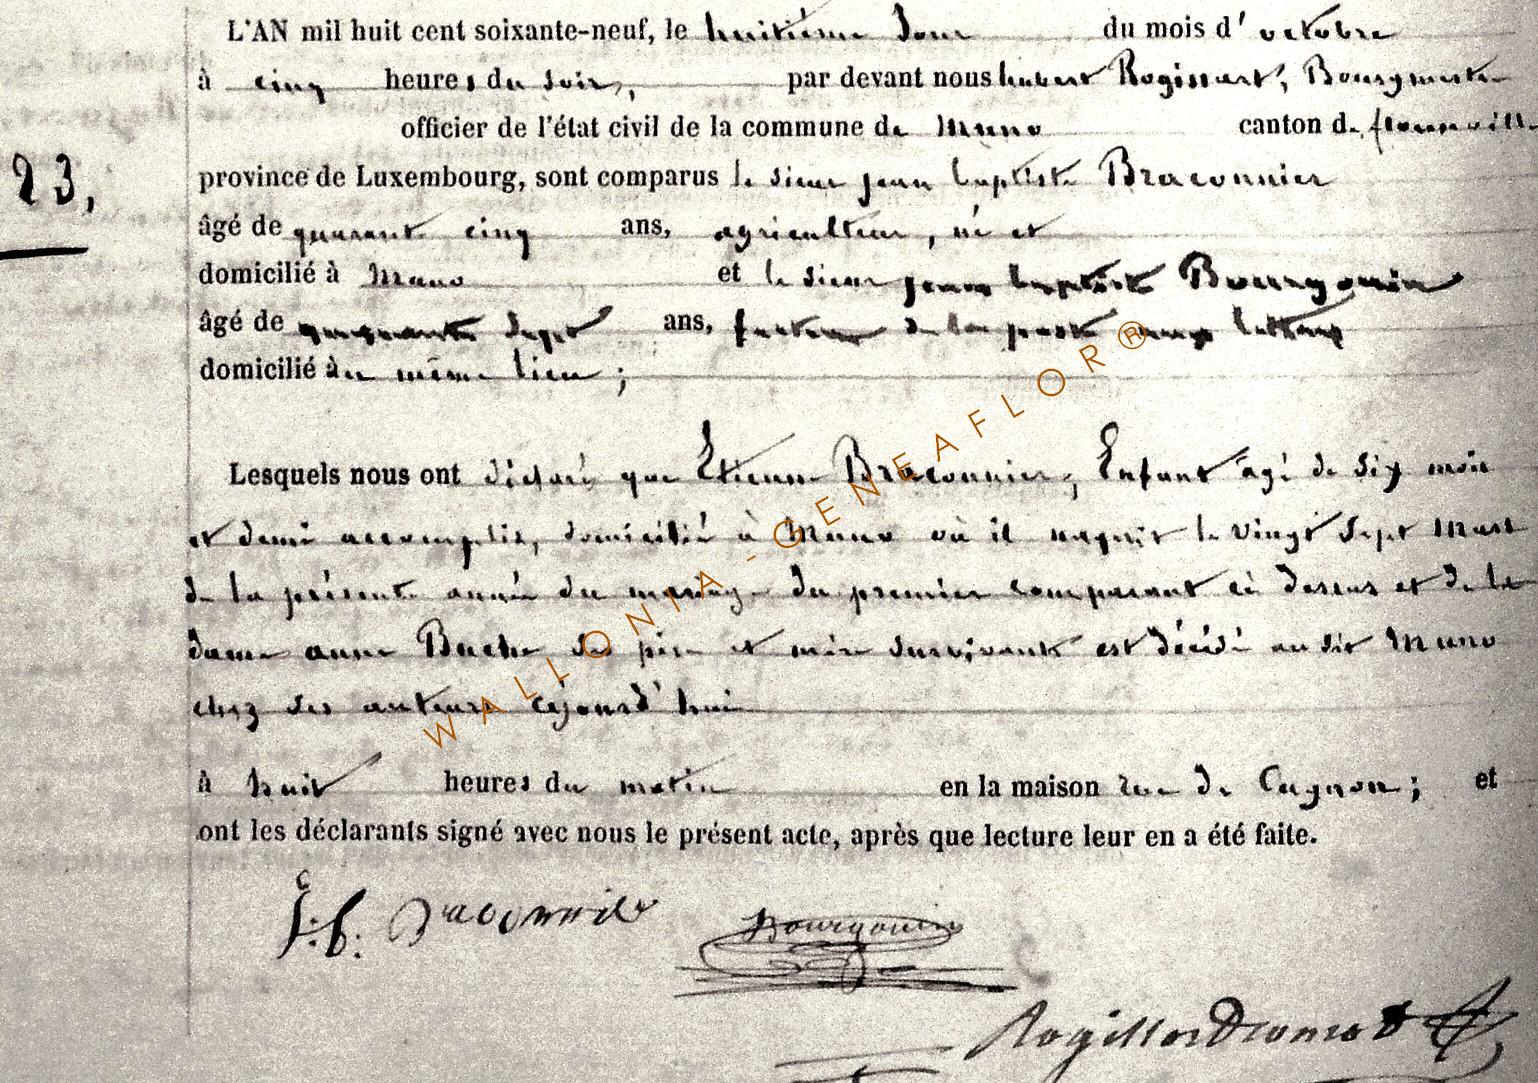 L'AN mil huit cent soixante-neuf, le huitième Jour du mois d' octobre
à cinq heures du soir, par devant nous hubert Rogissart, Bourgmestre
officier de l'état civil de la commune de Muno canton de florenville
23, province de Luxembourg, sont comparus le sieur jean baptiste Braconnier
âgé de quarante cinq ans, agriculteur, né et
domicilié à Muno et le sieur jean baptiste Bourgouin
âgé de sept ans, facteur de la poste aux lettres
domicilié au même lieu ;
Lesquels nous ont déclaré que Etienne Braconnier, Enfant agé de six mois
et demi accomplis, domicilié à Muno où il naquit le vingt sept Mars
de la présente année du mariage du premier comparant ci dessus et de la
dame anne Buche ses père et mère survivants est décédé au dit Muno
chez ses auteurs cejourd'hui
à huit heures du matin en la maison rue de Cugnon ; et
ont les déclarants signé avec nous le présent acte, après que lecture leur en a été faite.
J. B. Braconnier
Bourgouin
WALLONIA - GENEAFLOR ®